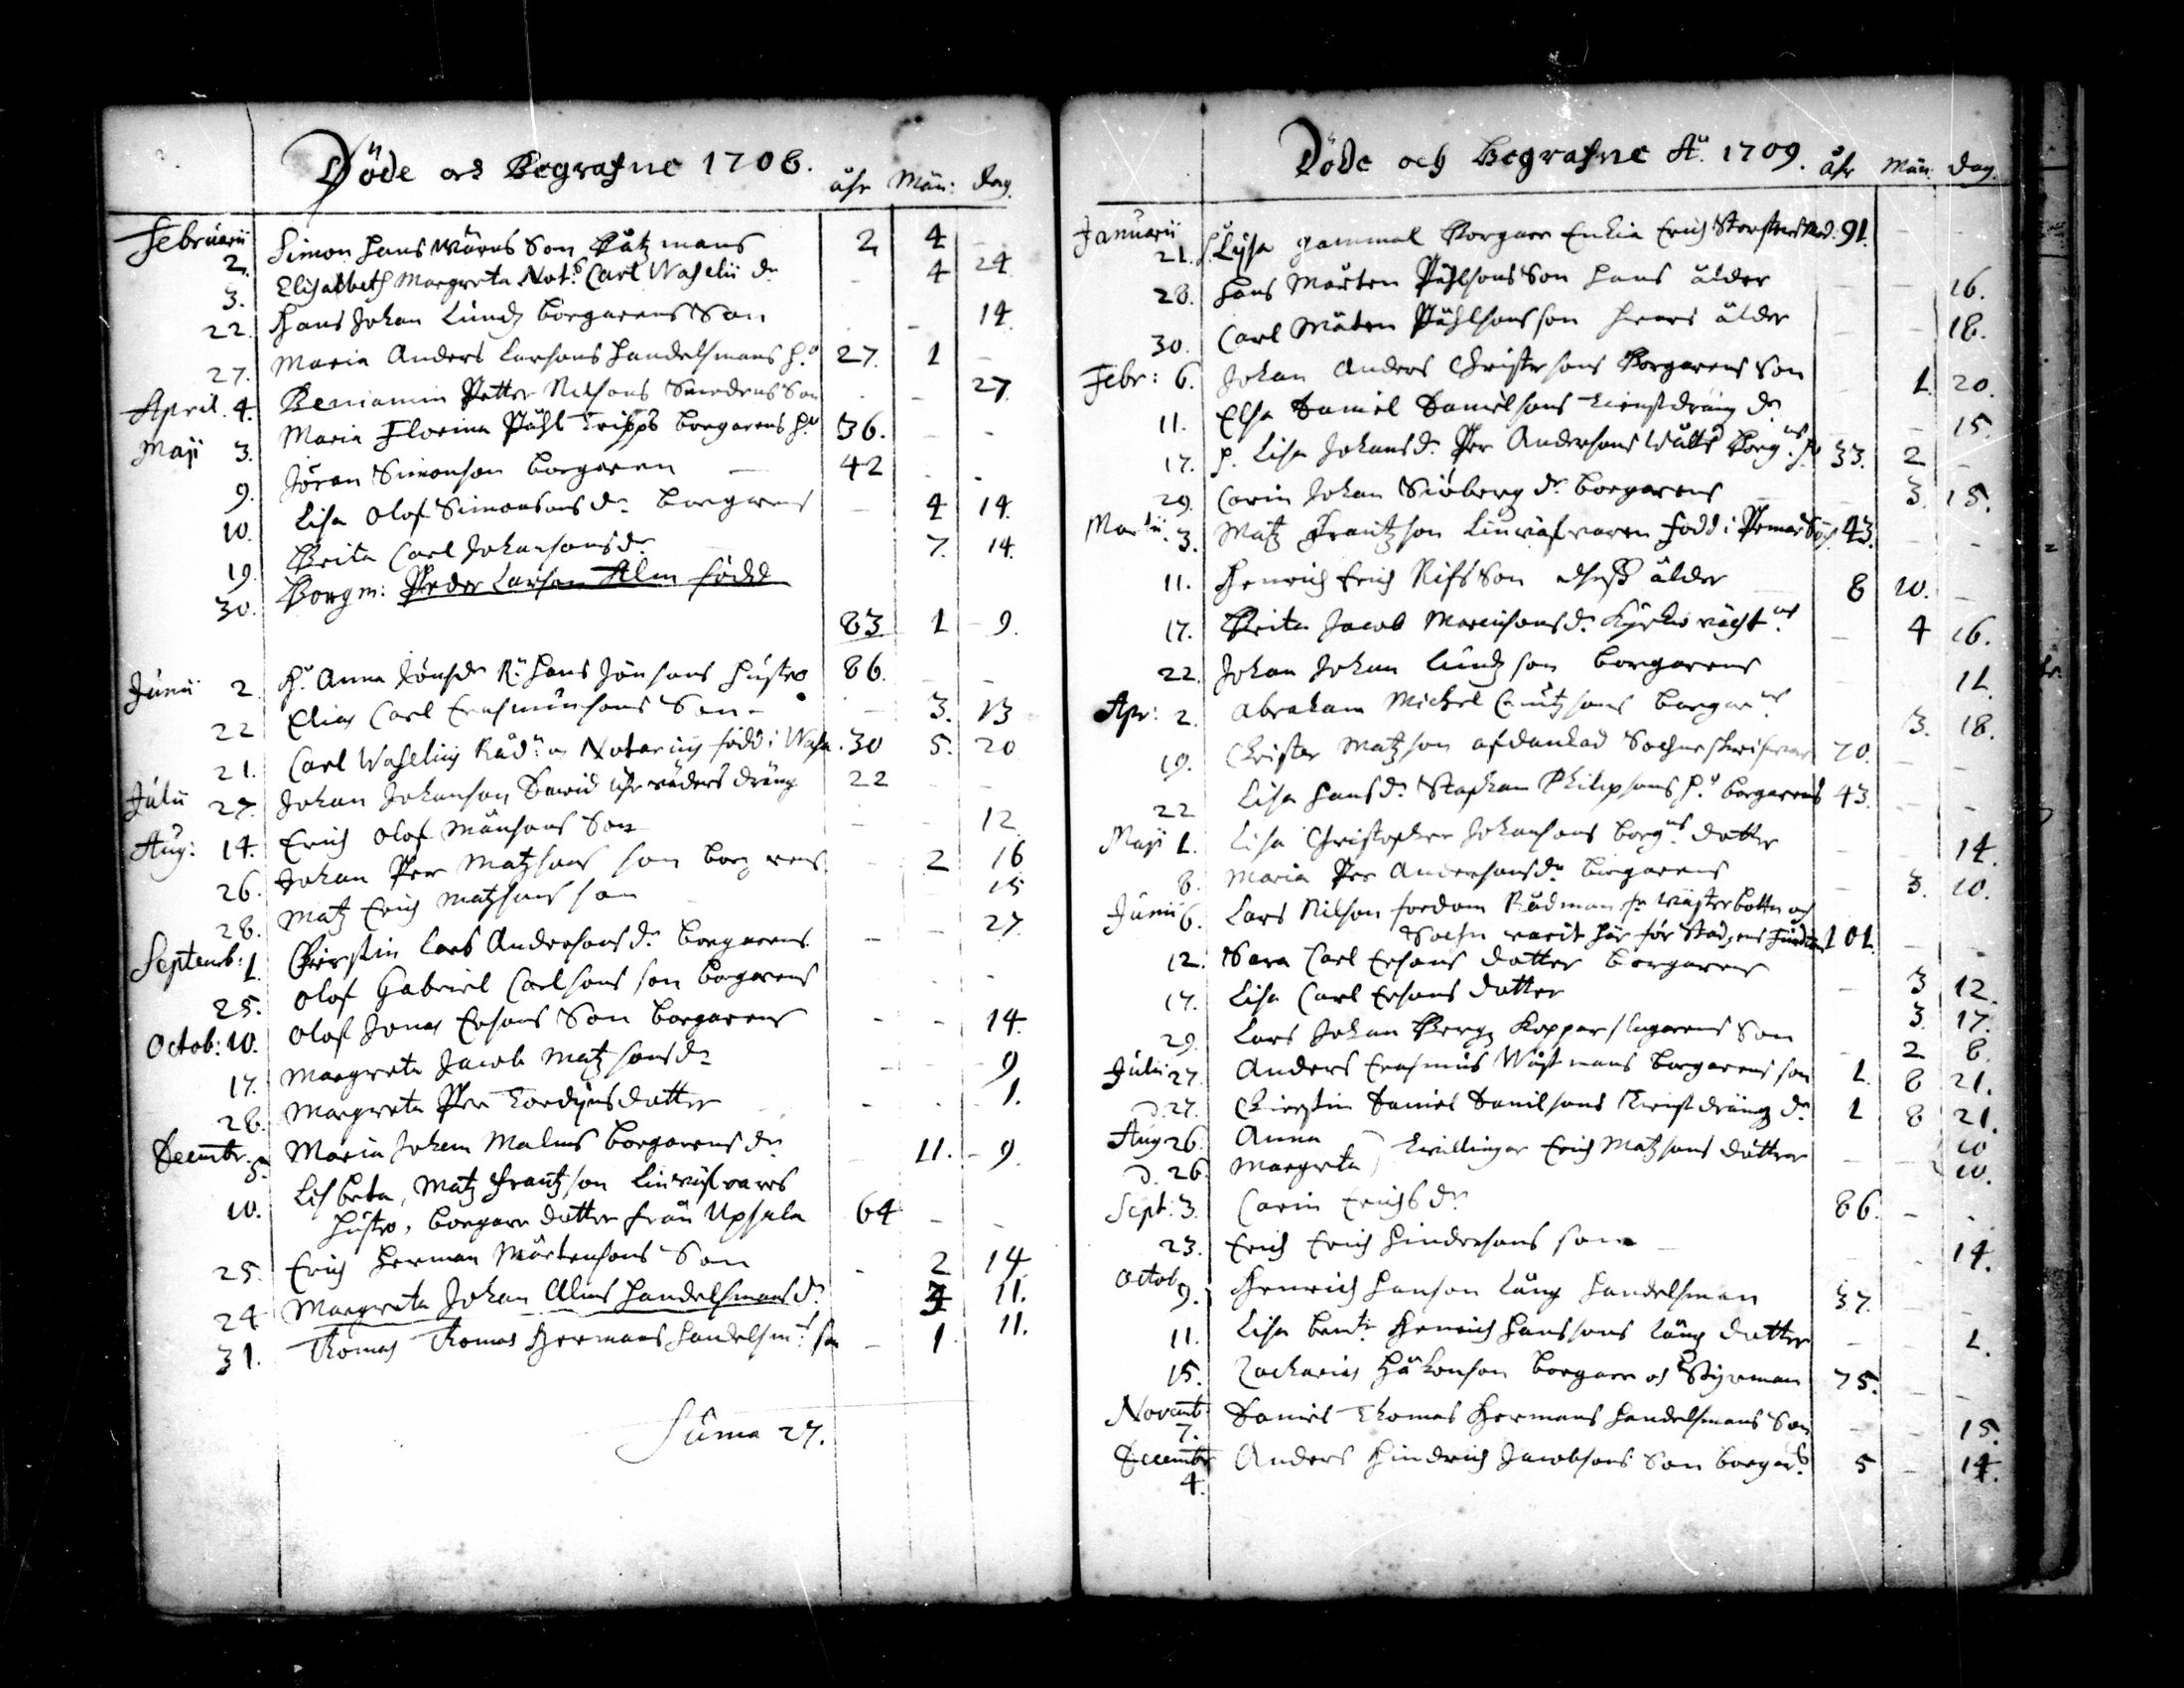 Döde och Begrafne 1708. åhr Mån: dag.
Februarii
2. Simon Hans Wärns Son Båtzmans 2 4 -
3. Elisabeth Margreta Not: Carl Waselii dr - 4 24
22. Hans Johan Lundz borgarens Son - 14.
27. Maria Anders Larsons Handelsmans h:o 27. 1 -
April 4. Beniamin Petter Nilsons Smedens Son - 27.
Maji 3. Maria Florina Påhl borgarens h:o 36. - -
9. Jöran Simonson borgaren 42 - -
10. Lisa Olof Simonsons dr borgarens - 4 14.
19. Brita Carl Johansons dr 7. 14.
30. Borgm: Peder Larson Alm född
83 1 9.
Junii 2 H:o Anna Jönsdr R: Hans Jönsons hustro 86. - -
22 Elias Carl Erasmunsons Son - - 3. 13
21. Carl Waselius Råd: och Notarius född i Wasa. 30 5. 20
Julii 27. Johan Johanson dräng 22 - -
Aug: 14. Erich Olof Månsons Son - - 12.
26. Johan Per Matzsons son borgarens - 2 16
28. Matz Erich Matzsons son 15
Septemb: 1. Kierstin Lars Andersons dr borgarens - - 27.
25. Olof Gabriel Carlsons son borgarens - -
Octob: 10. Olof Jonas Ersons Son borgarens - - 14.
17. Margreta Jacob Matzsons dr - - 9
28. Margreta Per dotter - - 1.
Decembr. 5. Maria Johan Malms borgarens dr 11. - 9.
10. Lisbeta, Matz Frantzson Linwäfvares
hustro, borgare dotter från Upsala 64 - -
25. Erich Herman Mårtensons Son - 2 14
24 Margreta Johan Alms Handelsmans dr 11.
31. Thomas Thomas Hermans Handelsm:s son - 1 11.
Suma 27.
Döde och Begrafne A:o 1709. åhr Mån: dag.
Januarii
21. h. Lisa gammal Borgare Enkia Erich 91. - -
28. Hans Mårten Påhlsons Son Hans ålder - - 16.
30. Carl Mårten Påhlsons son ålder - - 18.
Febr: 6. Johan Anders Christersons Borgarens Son 1. 20.
11. Elsa Daniel Danielsons dräng dr - - 15.
17. h. Lisa Johansdr Per Andersons Borg:ns h:o 33. 2 -
29. Carin Johan Siöberg dr borgarens - - 3. 15.
Martii. 3. Matz Frantzson Linwäfvaren född i 43. - -
11. Henrich Erich Son ålder 8 10. -
17. Brita Jacob dr - 4 16.
22. Johan Johan Lundz son borgarens - 11.
Apr: 2. Abraham Michel borgarens 3. 18.
19. Christer Matzson afdankad Sochneskrifvare 70. - -
22 Lisa Hansdr Staphan Philipsons h:o borgarens 43. - -
Maji 1. Lisa Christopher Johansons borg:ns dotter - - 14.
8. Maria Per Andersons dr borgarens - 3. 10.
Junii 6. Lars Nilson fordom Rådman
101. - -
12. Sara Carl Ersons dotter borgarens - 3 12.
17. Lisa Carl Ersons dotter 3. 17.
29. Lars Johan Bergz Kopparslagarens Son - 2 8.
Julii 27. Anders Erasmus borgarens son 1. 8 21.
d. 27. Kierstin Daniel Danilsons dräng dr 1 8 21.
Aug 26. Anna
d. 26 Margreta } Twillingar Erich Matzsons döttrar - - 10
10.
Sept: 3. Carin Erichs dr 86. - -
23. Erich Erich Hindersons son - 14.
Octob 9. Henrich Hanson Lång Handelsman 37. - -
11. Lisa Henrich Hanssons Lång dotter - - 1.
15. Zacharias Håkonson borgare och Styrman 75. - -
Novemb: 7. Daniel Thomas Hermans Handelsmans Son - - 15.
Decembr 4. Anders Hindrich Jacobsons Son borgar:s 5 - 14.